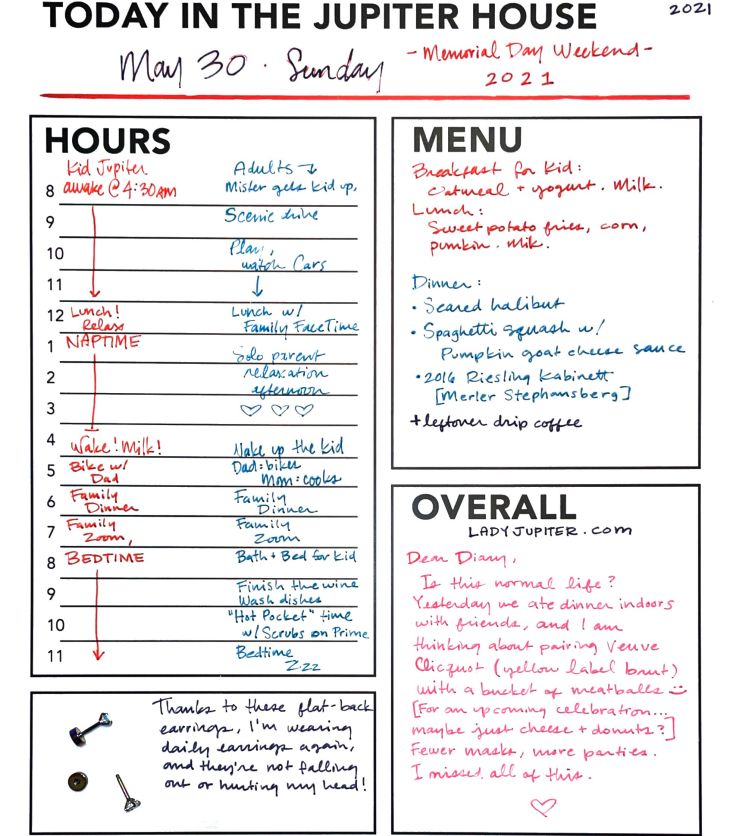 TODAY IN THE JUPITER HOUSE
2021
May 30 · Sunday
- Memorial Day Weekend -
2021
HOURS
Kid Jupiter
Adults ↴
8 awake @ 4:30AM
Mister gets kid up.
9
Scenic drive
10
Play,
watch Cars
11
↓
12 Lunch!
Relax
Lunch w/
Family FaceTime
1 NAPTIME
Solo parent
2
relaxation
afternoon
3
♡ ♡ ♡
4
Wake! Milk!
Wake up the kid
5 Bike w/
Dad
Dad: biker
Mom: cooks
6 Family
Dinner
Family
Dinner
7 Family
Zoom,
Family
Zoom
8 BEDTIME
Bath + Bed for kid
9
Finish the wine
Wash dishes
10
"Hot Pocket" time
w/ Scrubs on Prime
11
Bedtime
Zzz
Thanks to these flat-back
earrings, I'm wearing
daily earrings again,
and they're not falling
out or hurting my head!
MENU
Breakfast for Kid:
Oatmeal + yogurt. Milk.
Lunch:
Sweet potato fries, corn,
pumkin. Milk.
Dinner:
• Seared halibut
• Spaghetti squash w/
Pumpkin goat cheese sauce
• 2016 Riesling Kabinett
[Merler Stephansberg]
+ leftover drip coffee
OVERALL
LADYJUPITER.com
Dear Diary,
Is this normal life?
Yesterday we ate dinner indoors
with friends, and I am
thinking about pairing Veuve
Clicquot (yellow label brut)
with a bucket of meatballs
[For an upcoming celebration...
maybe just cheese + donuts?]
Fewer masks, more parties.
I missed all of this.
♡